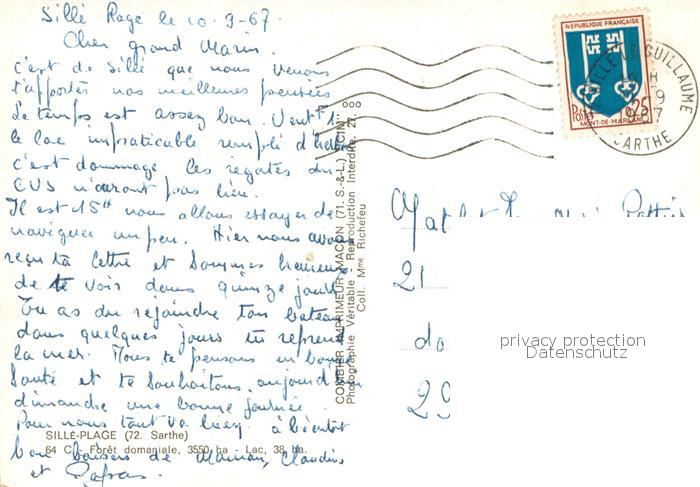 Sillé Plage le 10-9-67.
Cher grand Marin.
c'est de Sillé que nous venons
t'apporter nos meilleures pensées
Le temps est assez bon. Vent F 1
le lac impraticable rempli d'herbe
c'est dommage les régates du
CVS n'auront pas lieu.
Il est 15H nous allons essayer de
naviguer un peu. Hier nous avons
reçu ta lettre et sommes heureux
de te voir dans quinze jours
Tu as du rejoindre ton bateau
dans quelques jours tu reprends
la mer. Nous te pensons en bonne
Santé et te Souhaitons aujourd'hui
dimanche une bonne journée.
Pour nous tout va bien. à bientôt
bons baisers de Maman, Claudius
et
SILLÉ-PLAGE (72. Sarthe)
64 C - Forêt domaniale, 3550 ha - Lac, 38 ha.
COMBIER IMPRIMEUR MACON (71. S.-&-L.) "CIM"
Photographie Véritable - Reproduction Interdite. 21.
Coll. Mme Richefeu
REPUBLIQUE FRANÇAISE
Postes 0,25
MONT-DE-MARSAN
SILLE-LE-GUILLAUME
SARTHE
Mat
21
do
29
privacy protection
Datenschutz